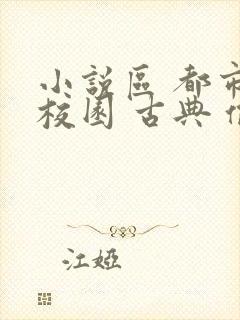 小説區 都市
校園 古典
江婭